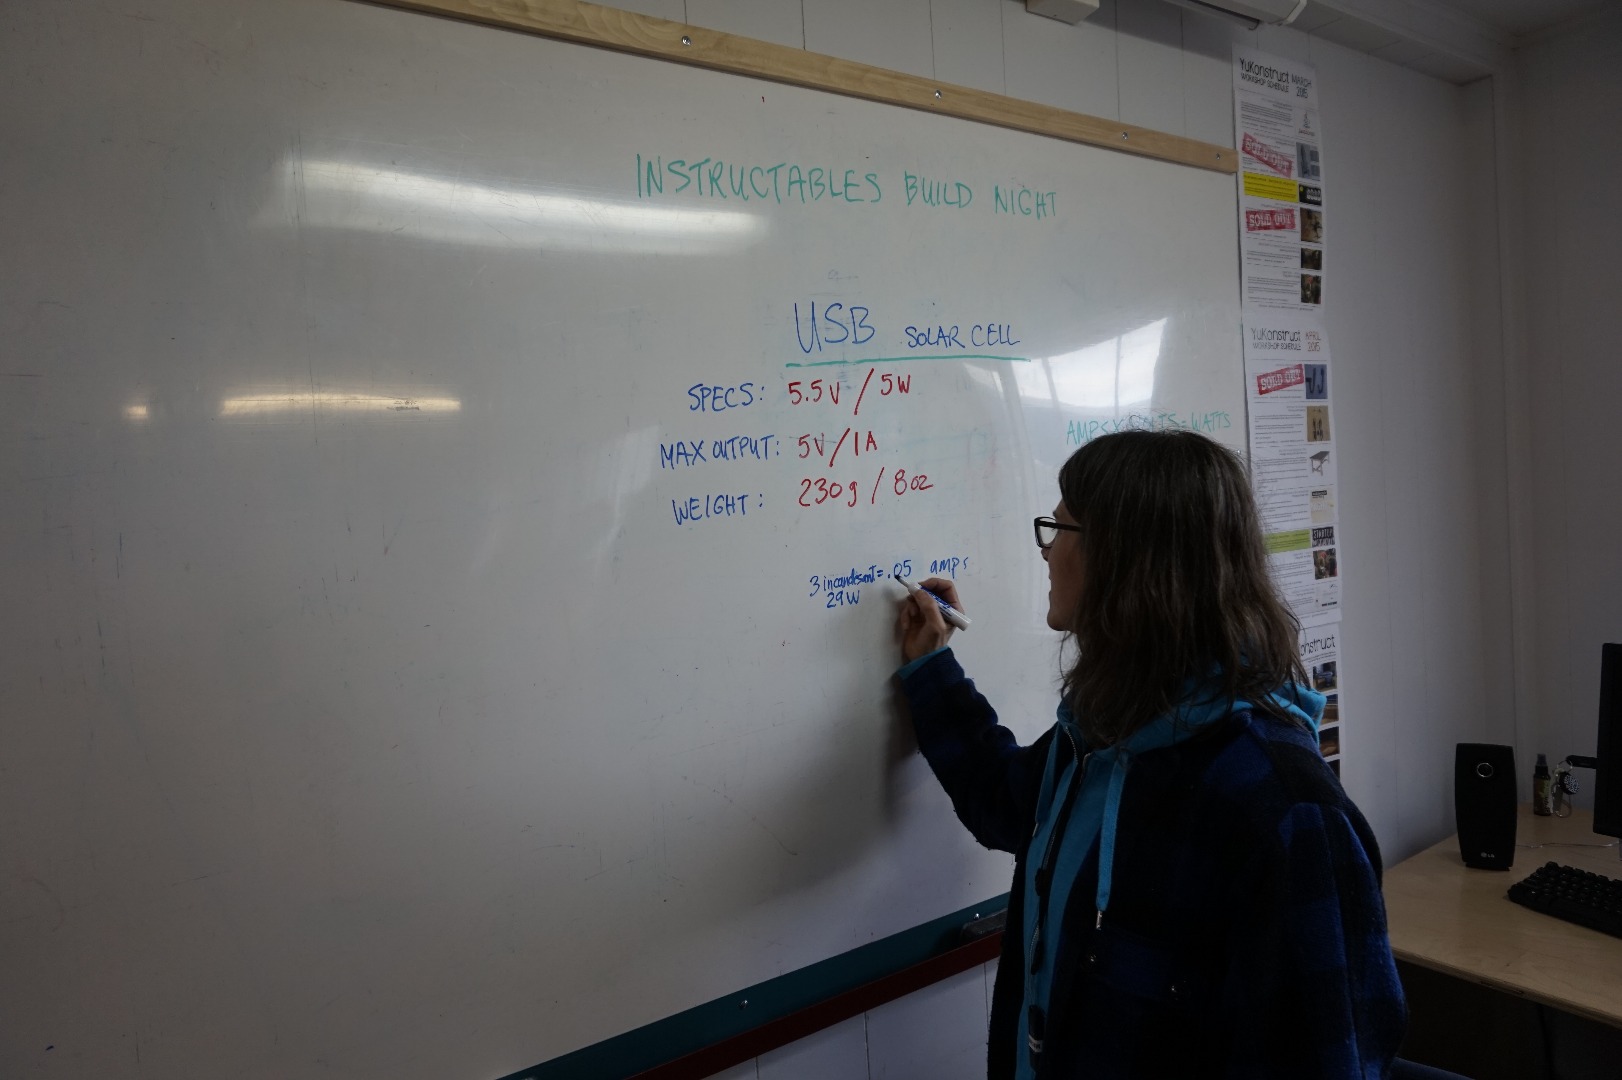 INSTRUCTABLES BUILD NIGHT
USB SOLAR CELL
SPECS: 5.5V / 5W
MAX OUTPUT: 5V / 1A
WEIGHT: 230g / 8oz
AMPS X VOLTS = WATTS
3 incandesant = .05 amps
29W
YuKonstruct MARCH 2015
WORKSHOP SCHEDULE
SOLD OUT
SOLD OUT
YuKonstruct APRIL 2015
WORKSHOP SCHEDULE
SOLD OUT
onstruct
LG